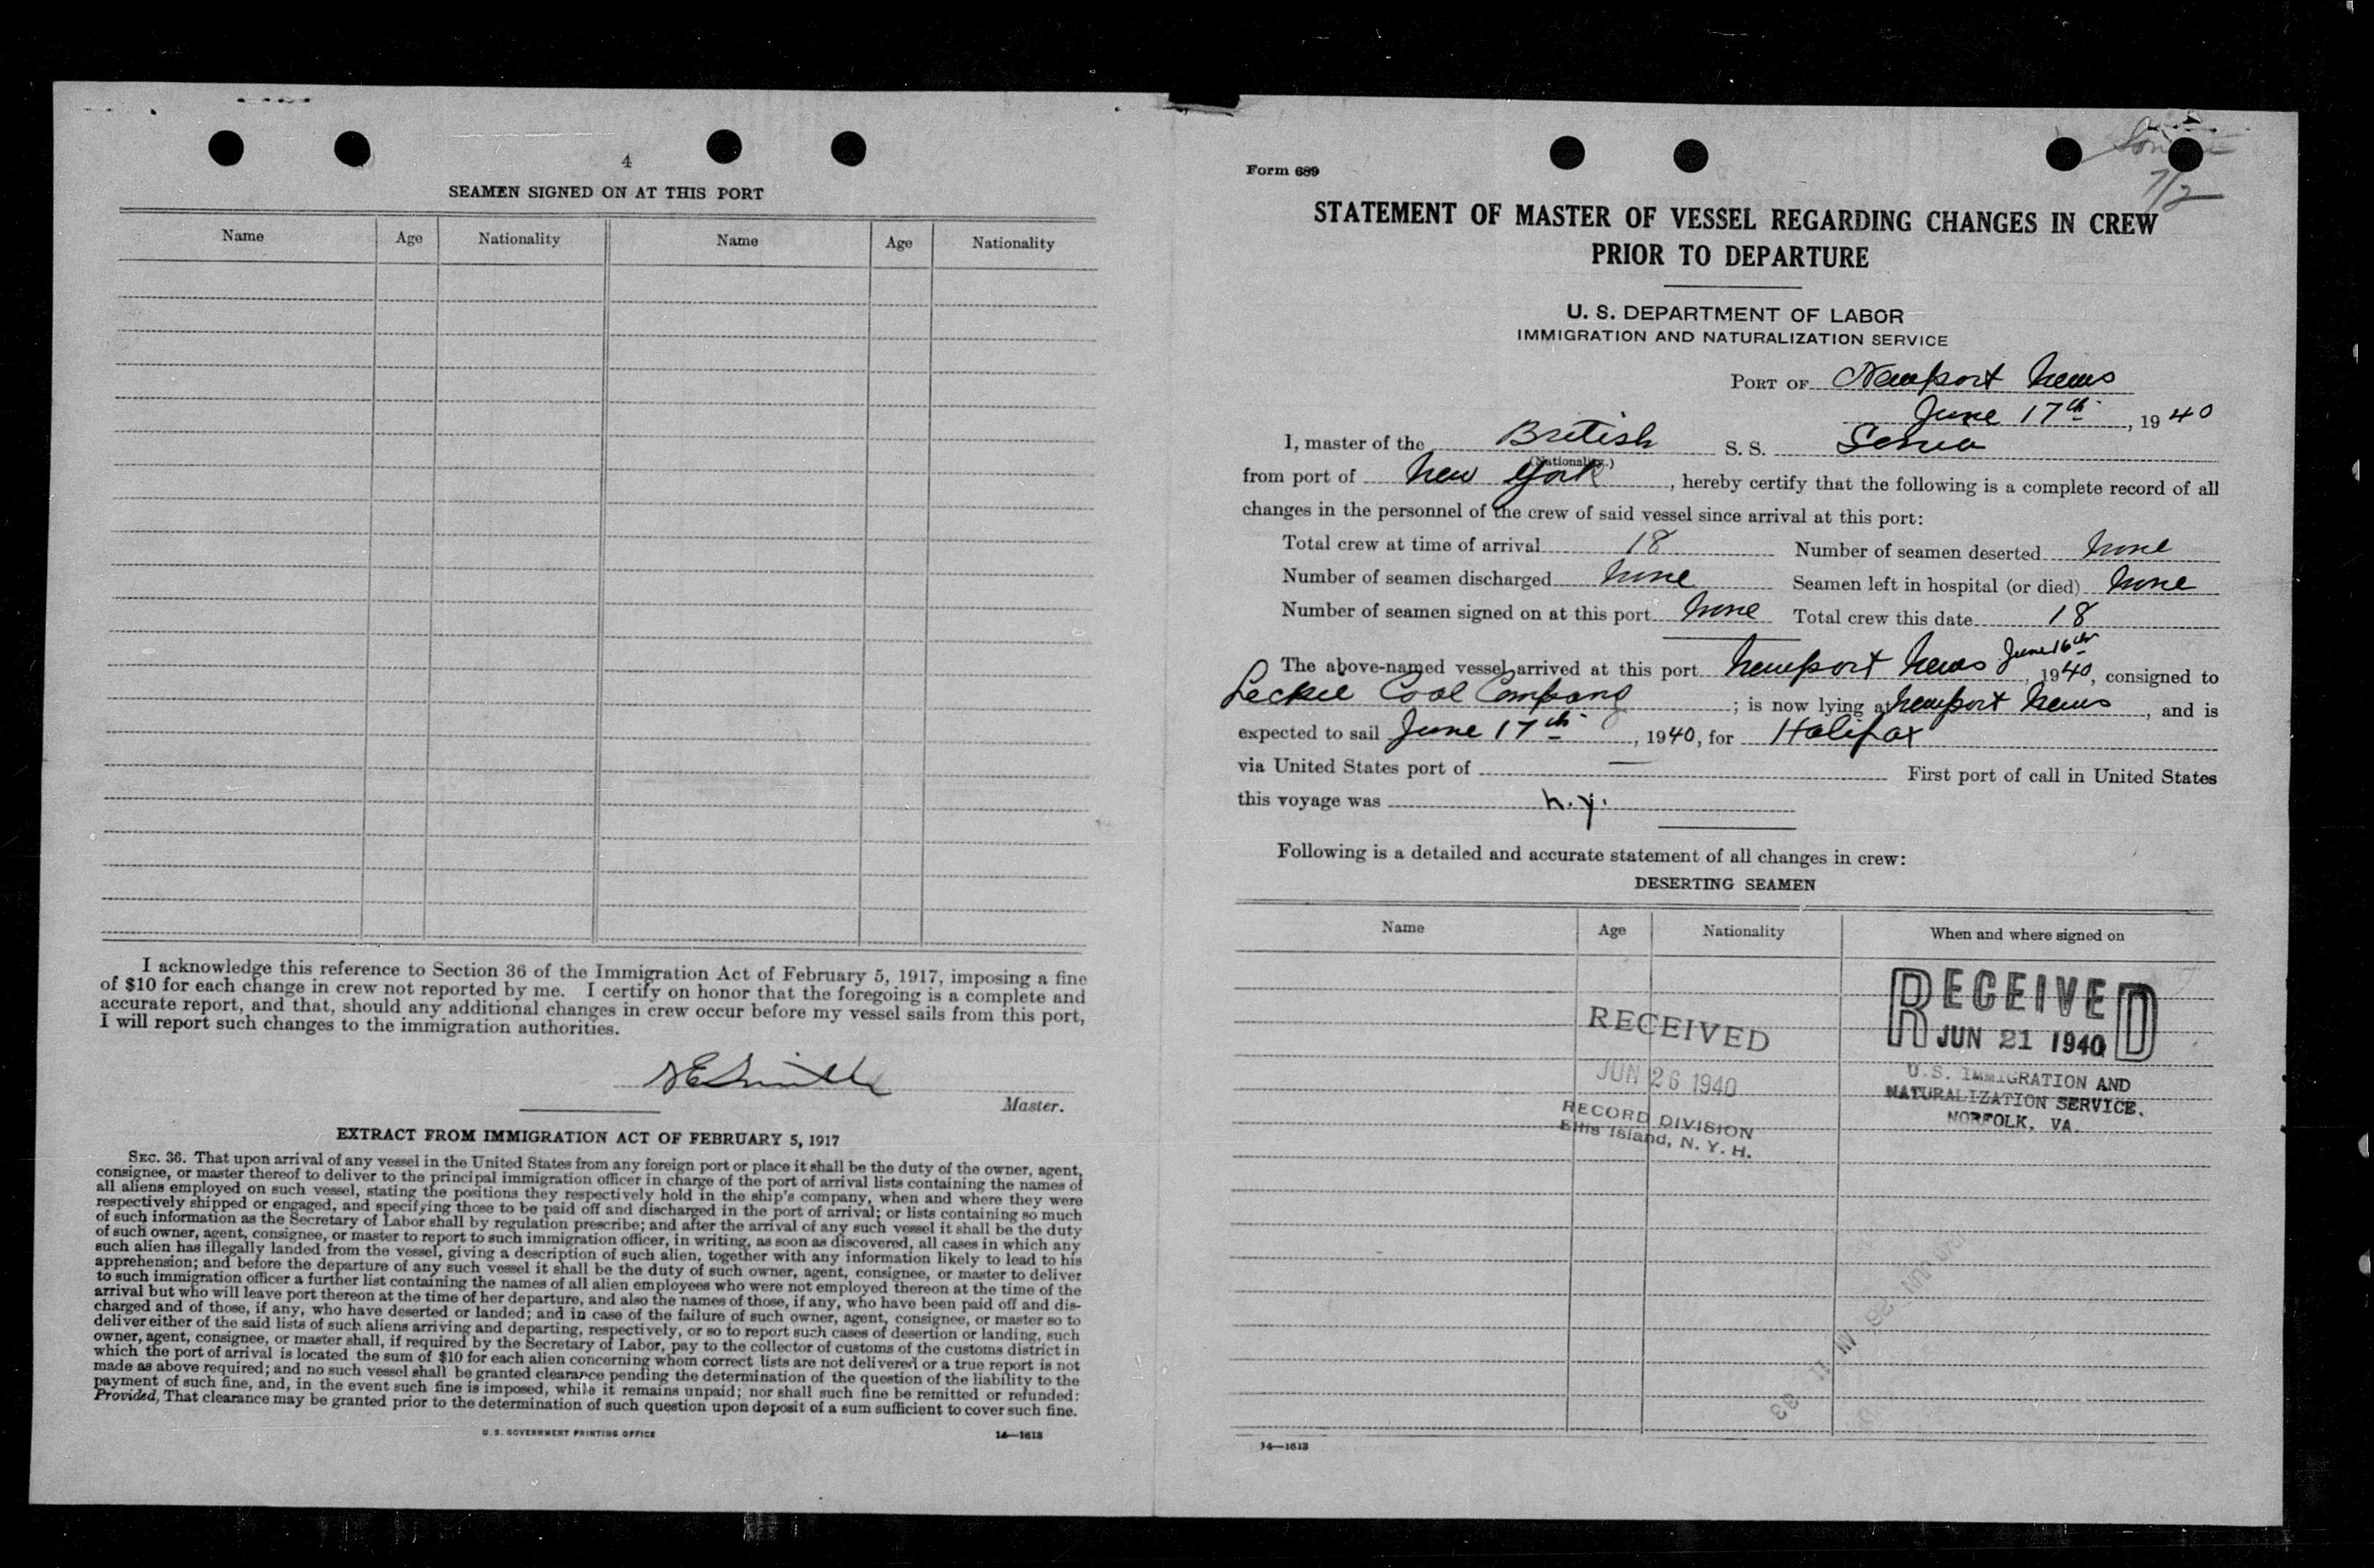 4
SEAMEN SIGNED ON AT THIS PORT
Name Age Nationality Name Age Nationality
I acknowledge this reference to Section 36 of the Immigration Act of February 5, 1917, imposing a fine
of $10 for each change in crew not reported by me. I certify on honor that the foregoing is a complete and
accurate report, and that, should any additional changes in crew occur before my vessel sails from this port,
I will report such changes to the immigration authorities.
Smith
Master.
EXTRACT FROM IMMIGRATION ACT OF FEBRUARY 5, 1917
SEC. 36. That upon arrival of any vessel in the United States from any foreign port or place it shall be the duty of the owner, agent,
consignee, or master thereof to deliver to the principal immigration officer in charge of the port of arrival lists containing the names of
all aliens employed on such vessel, stating the positions they respectively hold in the ship's company, when and where they were
respectively shipped or engaged, and specifying those to be paid off and discharged in the port of arrival; or lists containing so much
of such information as the Secretary of Labor shall by regulation prescribe; and after the arrival of any such vessel it shall be the duty
of such owner, agent, consignee, or master to report to such immigration officer, in writing, as soon as discovered, all cases in which any
such alien has illegally landed from the vessel, giving a description of such alien, together with any information likely to lead to his
apprehension; and before the departure of any such vessel it shall be the duty of such owner, agent, consignee, or master to deliver
to such immigration officer a further list containing the names of all alien employees who were not employed thereon at the time of the
arrival but who will leave port thereon at the time of her departure, and also the names of those, if any, who have been paid off and dis-
charged and of those, if any, who have deserted or landed; and in case of the failure of such owner, agent, consignee, or master so to
deliver either of the said lists of such aliens arriving and departing, respectively, or so to report such cases of desertion or landing, such
owner, agent, consignee, or master shall, if required by the Secretary of Labor, pay to the collector of customs of the customs district in
which the port of arrival is located the sum of $10 for each alien concerning whom correct lists are not delivered or a true report is not
made as above required; and no such vessel shall be granted clearance pending the determination of the question of the liability to the
payment of such fine, and, in the event such fine is imposed, while it remains unpaid; nor shall such fine be remitted or refunded:
Provided, That clearance may be granted prior to the determination of such question upon deposit of a sum sufficient to cover such fine.
U. S. GOVERNMENT PRINTING OFFICE 14—1613
Form 689
7/2
STATEMENT OF MASTER OF VESSEL REGARDING CHANGES IN CREW
PRIOR TO DEPARTURE
U. S. DEPARTMENT OF LABOR
IMMIGRATION AND NATURALIZATION SERVICE
PORT OF Newport News
June 17th, 1940
I, master of the British S. S.
(Nationality.)
from port of New York, hereby certify that the following is a complete record of all
changes in the personnel of the crew of said vessel since arrival at this port:
Total crew at time of arrival 18 Number of seamen deserted None
Number of seamen discharged None Seamen left in hospital (or died) None
Number of seamen signed on at this port None Total crew this date 18
The above-named vessel arrived at this port Newport News June 16th, 1940, consigned to
Leckie Coal Company; is now lying at Newport News, and is
expected to sail June 17th, 1940, for Halifax
via United States port of — First port of call in United States
this voyage was N.Y.
Following is a detailed and accurate statement of all changes in crew:
DESERTING SEAMEN
Name Age Nationality When and where signed on
RECEIVED
JUN 21 1940
U.S. IMMIGRATION AND
NATURALIZATION SERVICE.
NORFOLK, VA.
RECEIVED
JUN 26 1940
RECORD DIVISION
Ellis Island, N. Y. H.
14—1613